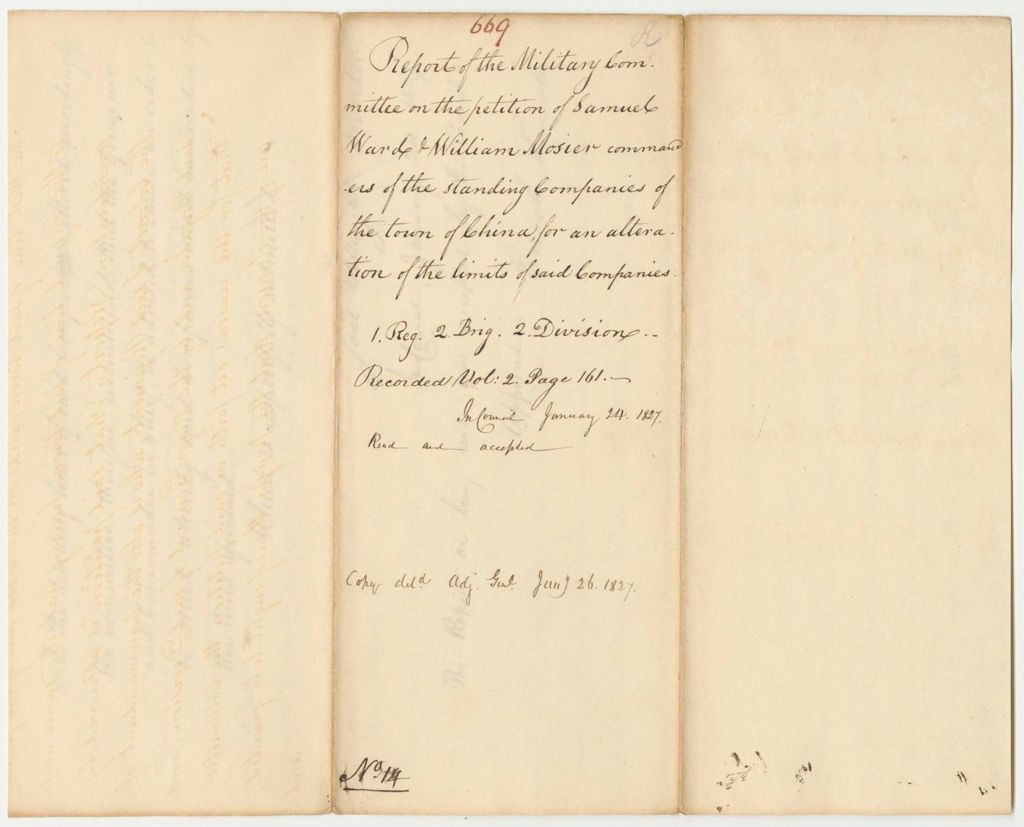 669
R
Report of the Military Com-
mittee on the petition of Samuel
Ward & William Mosier command
ers of the standing Companies of
the town of China, for an altera-
tion of the limits of said Companies.
1. Reg. 2. Brig. 2. Division.
Recorded Vol: 2. Page 161.
In Council January 24. 1827.
Read and accepted
Copy deld. Adj. Genl. Jany 26. 1827.
No. 14